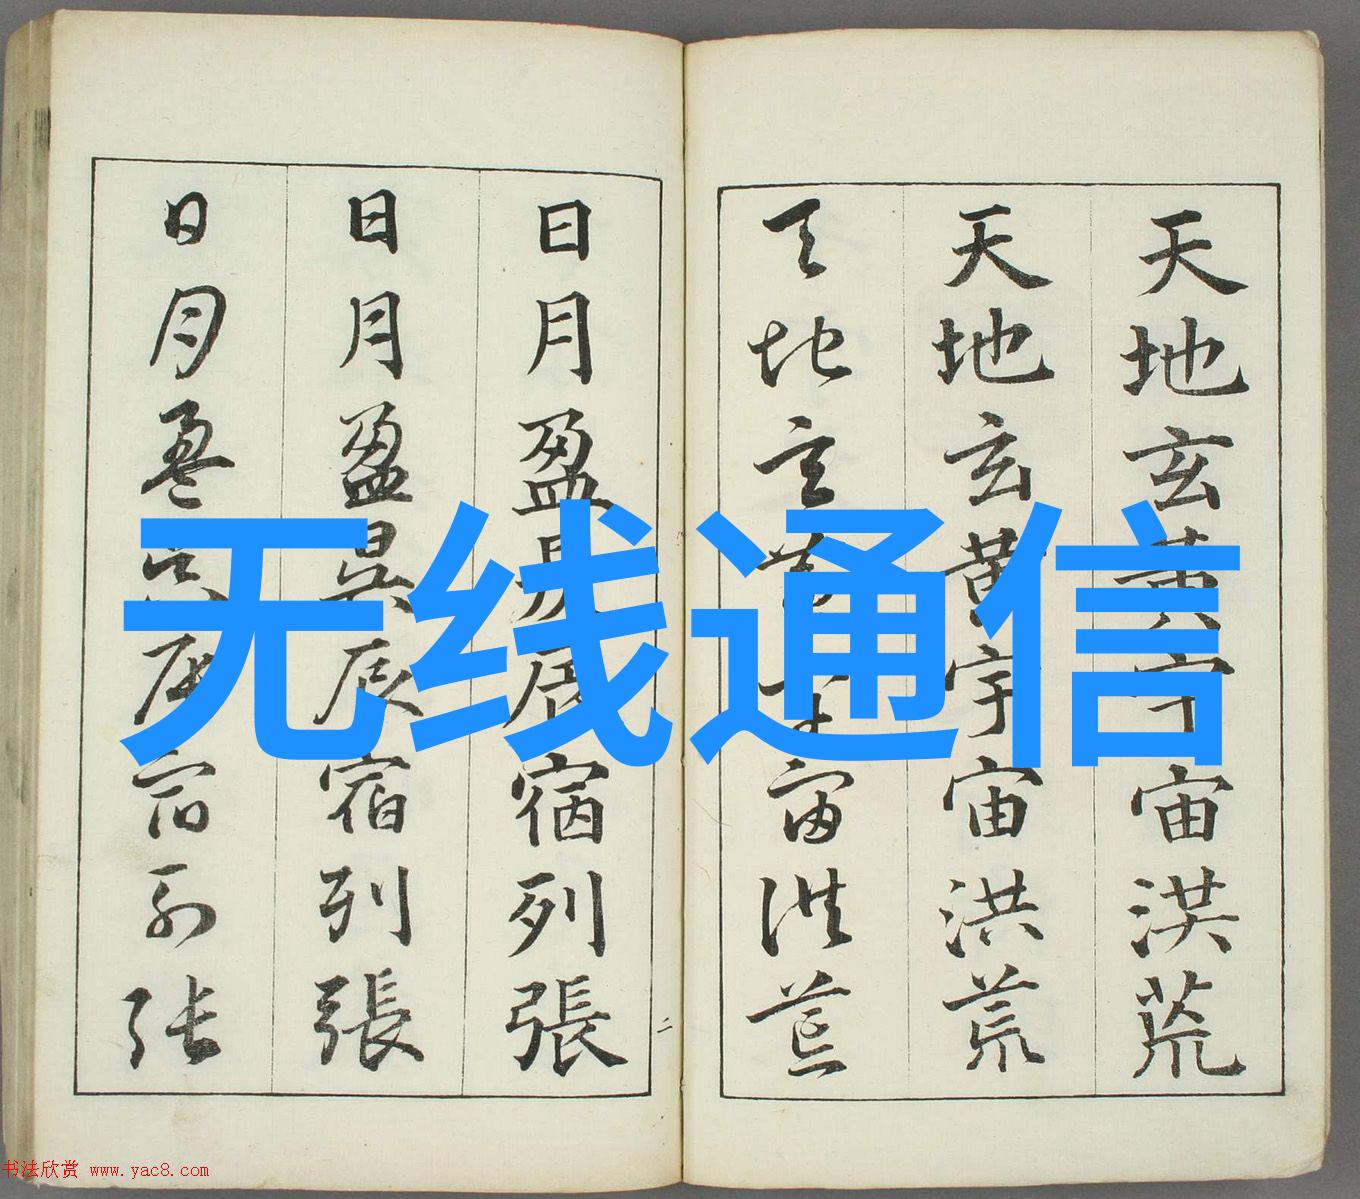 天地玄黄宇宙洪荒
天地玄黄宇宙洪荒
天地玄黄宇宙洪荒
二
日月盈昃辰宿列張
日月盈昃辰宿列張
日月盈昃辰宿列張
无线通信
书法欣赏 www.yac8.com